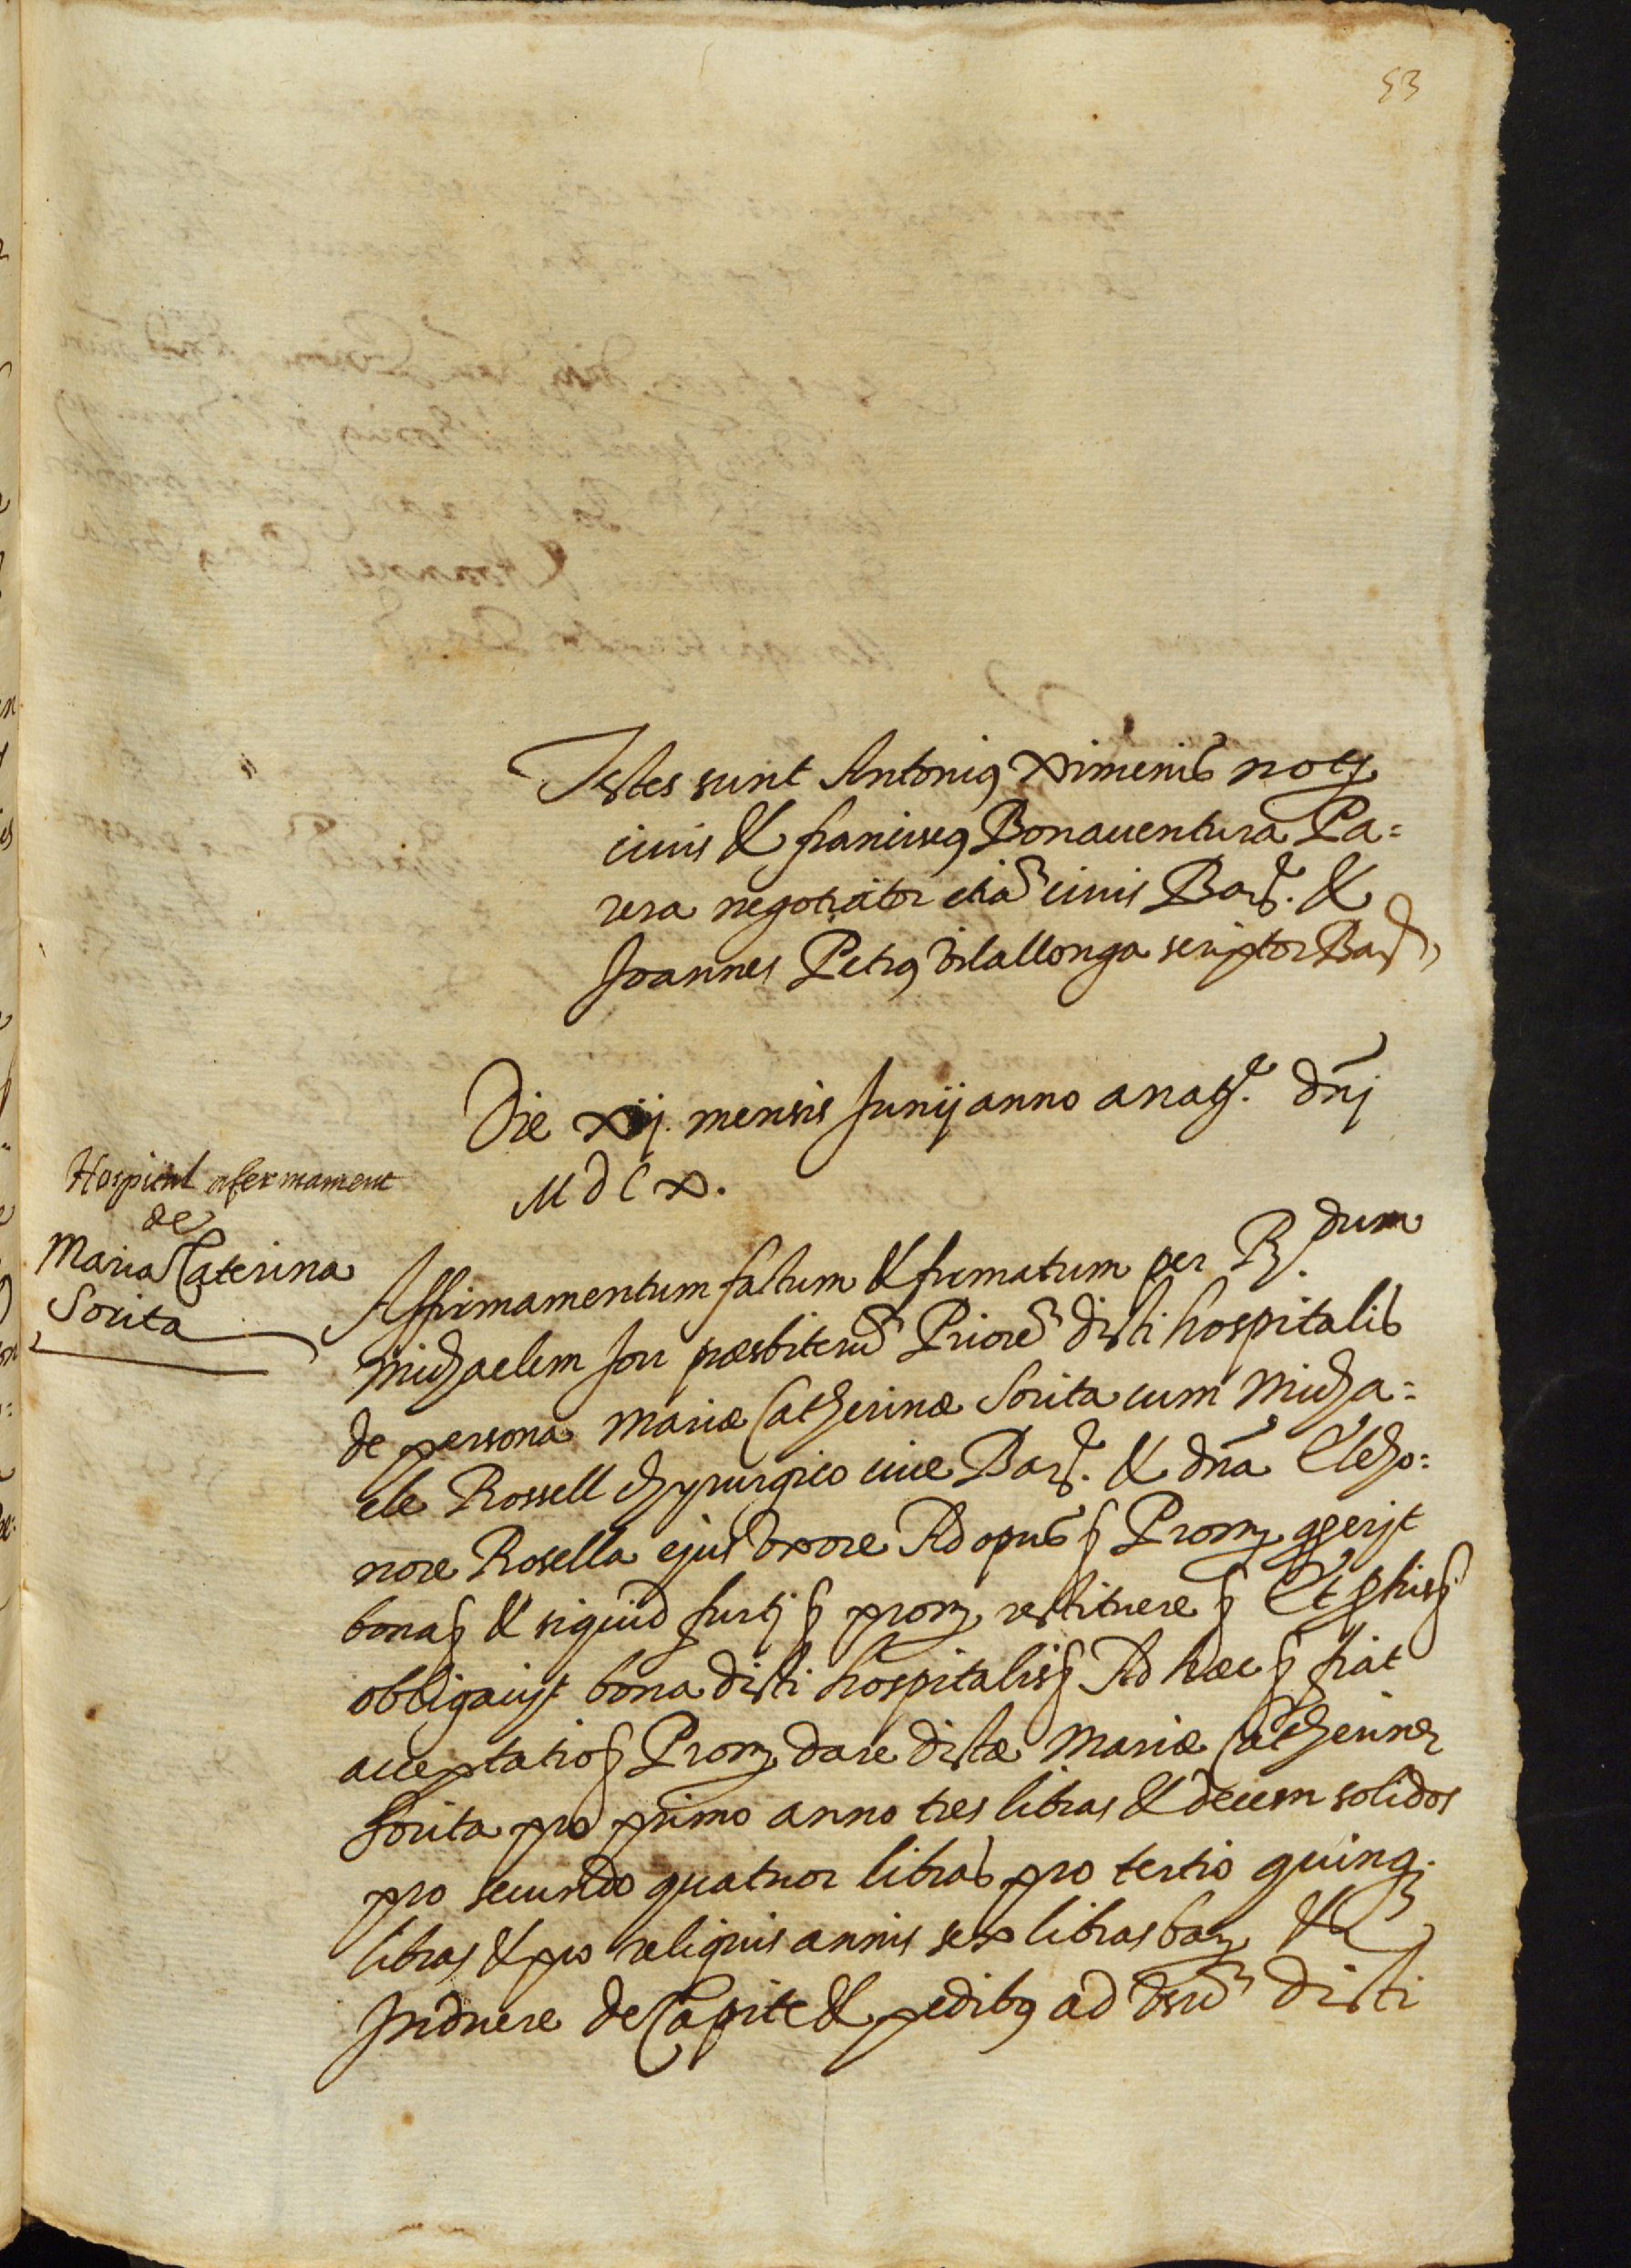 53
Testes sunt Antonius Ximenis notus
civis & franciscus Bonaventura Pa=
rera negotiator etiã civis Barᵉ. &
Joannes Petrus Vilallonga scriptor Barᵉ
Die xij. mensis Junij anno a natᵉ. dñj
MDCx.
Hospital afermament
de
Maria Caterina
Sorita
Affirmamentum factum & firmatum per R.dum
Michaelem Jorr præsbiterũ Priorẽ dicti hospitalis
de persona Mariæ Catherinæ Sorita cum Micha=
ele Rossell chyrurgico cive Barᵉ. & dña Eleho=
nore Rosella ejus Vxore Ad opus § Prom.
bona § & siquid furtj § prom. restituere § Et
obligavit bona dicti hospitalis § Ad hæc § fiat
acceptatio § Prom. dare dictæ Mariæ Catherinæ
Sorita pro primo anno tres libras & decem solidos
pro secundo quatuor libras pro tertio quinq.
libras & pro reliquis annis sex libras bar. &
Induere de Capite & pedibus ad Vsũ dicti